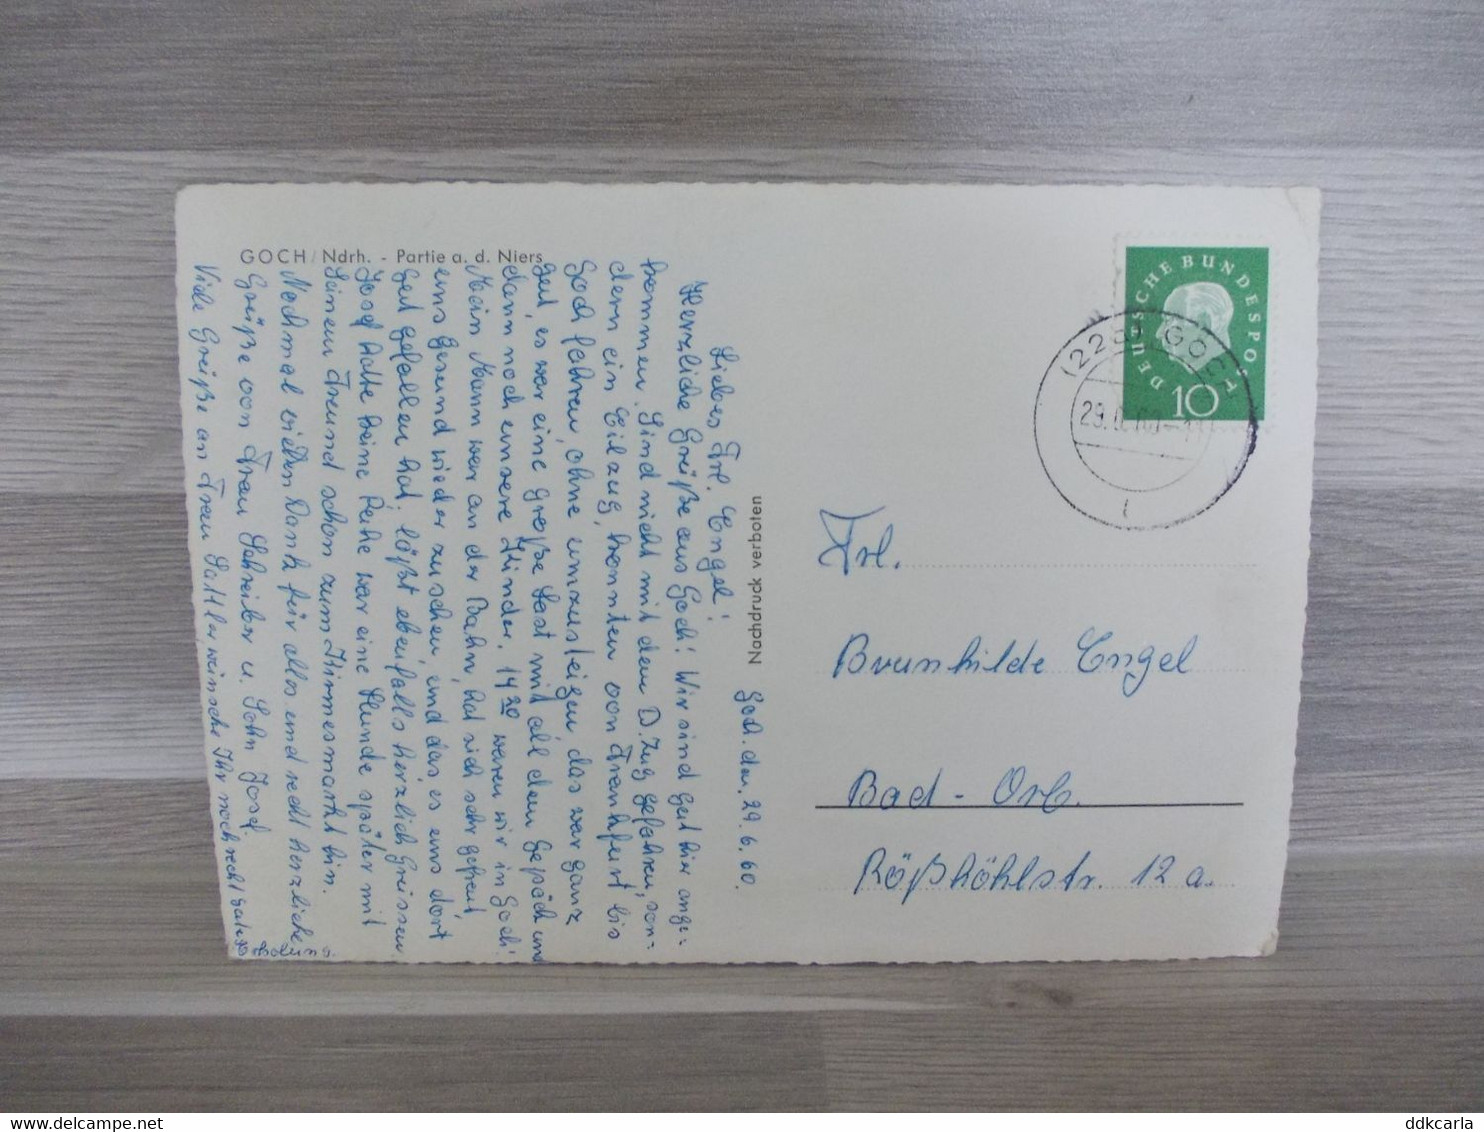 GOCH/Ndrh. - Partie a. d. Niers
Nachdruck verboten
Goch. den. 29.6.60.
Liebes Frl. Engel!
Herzliche Grüße aus Goch! Wir sind gut hier ange-
kommen. Sind nicht mit dem D. Zug gefahren, son-
dern ein Eilzug, konnten von Frankfurt bis
Goch fahren, ohne umzusteigen, das war ganz
gut, es war eine große Last mit all dem Gepäck und
dann noch unsere Kinder. 14 30 waren wir in Goch!
Mein Mann war an der Bahn, hat sich sehr gefreut,
uns gesund wieder zu sehen, und das es uns dort
gut gefallen hat. läßt ebenfalls herzlich Grüssen
Josef hatte keine Ruhe war eine Stunde später mit
seinem Freund schon zum Kirmesmarkt hin.
Nochmal vielen Dank für alles und recht herzliche
Grüße von Frau Schreiber u. Sohn Josef.
Viele Grüße an Frau Sattler wünsche Ihr noch recht gute
Erholung.
DEUTSCHE BUNDESPOST
10
(22a) GOCH
29.6.60-11
Frl.
Brunhilde Engel
Bad - Orb.
Rößköhlstr. 12 a.
ddkcarla